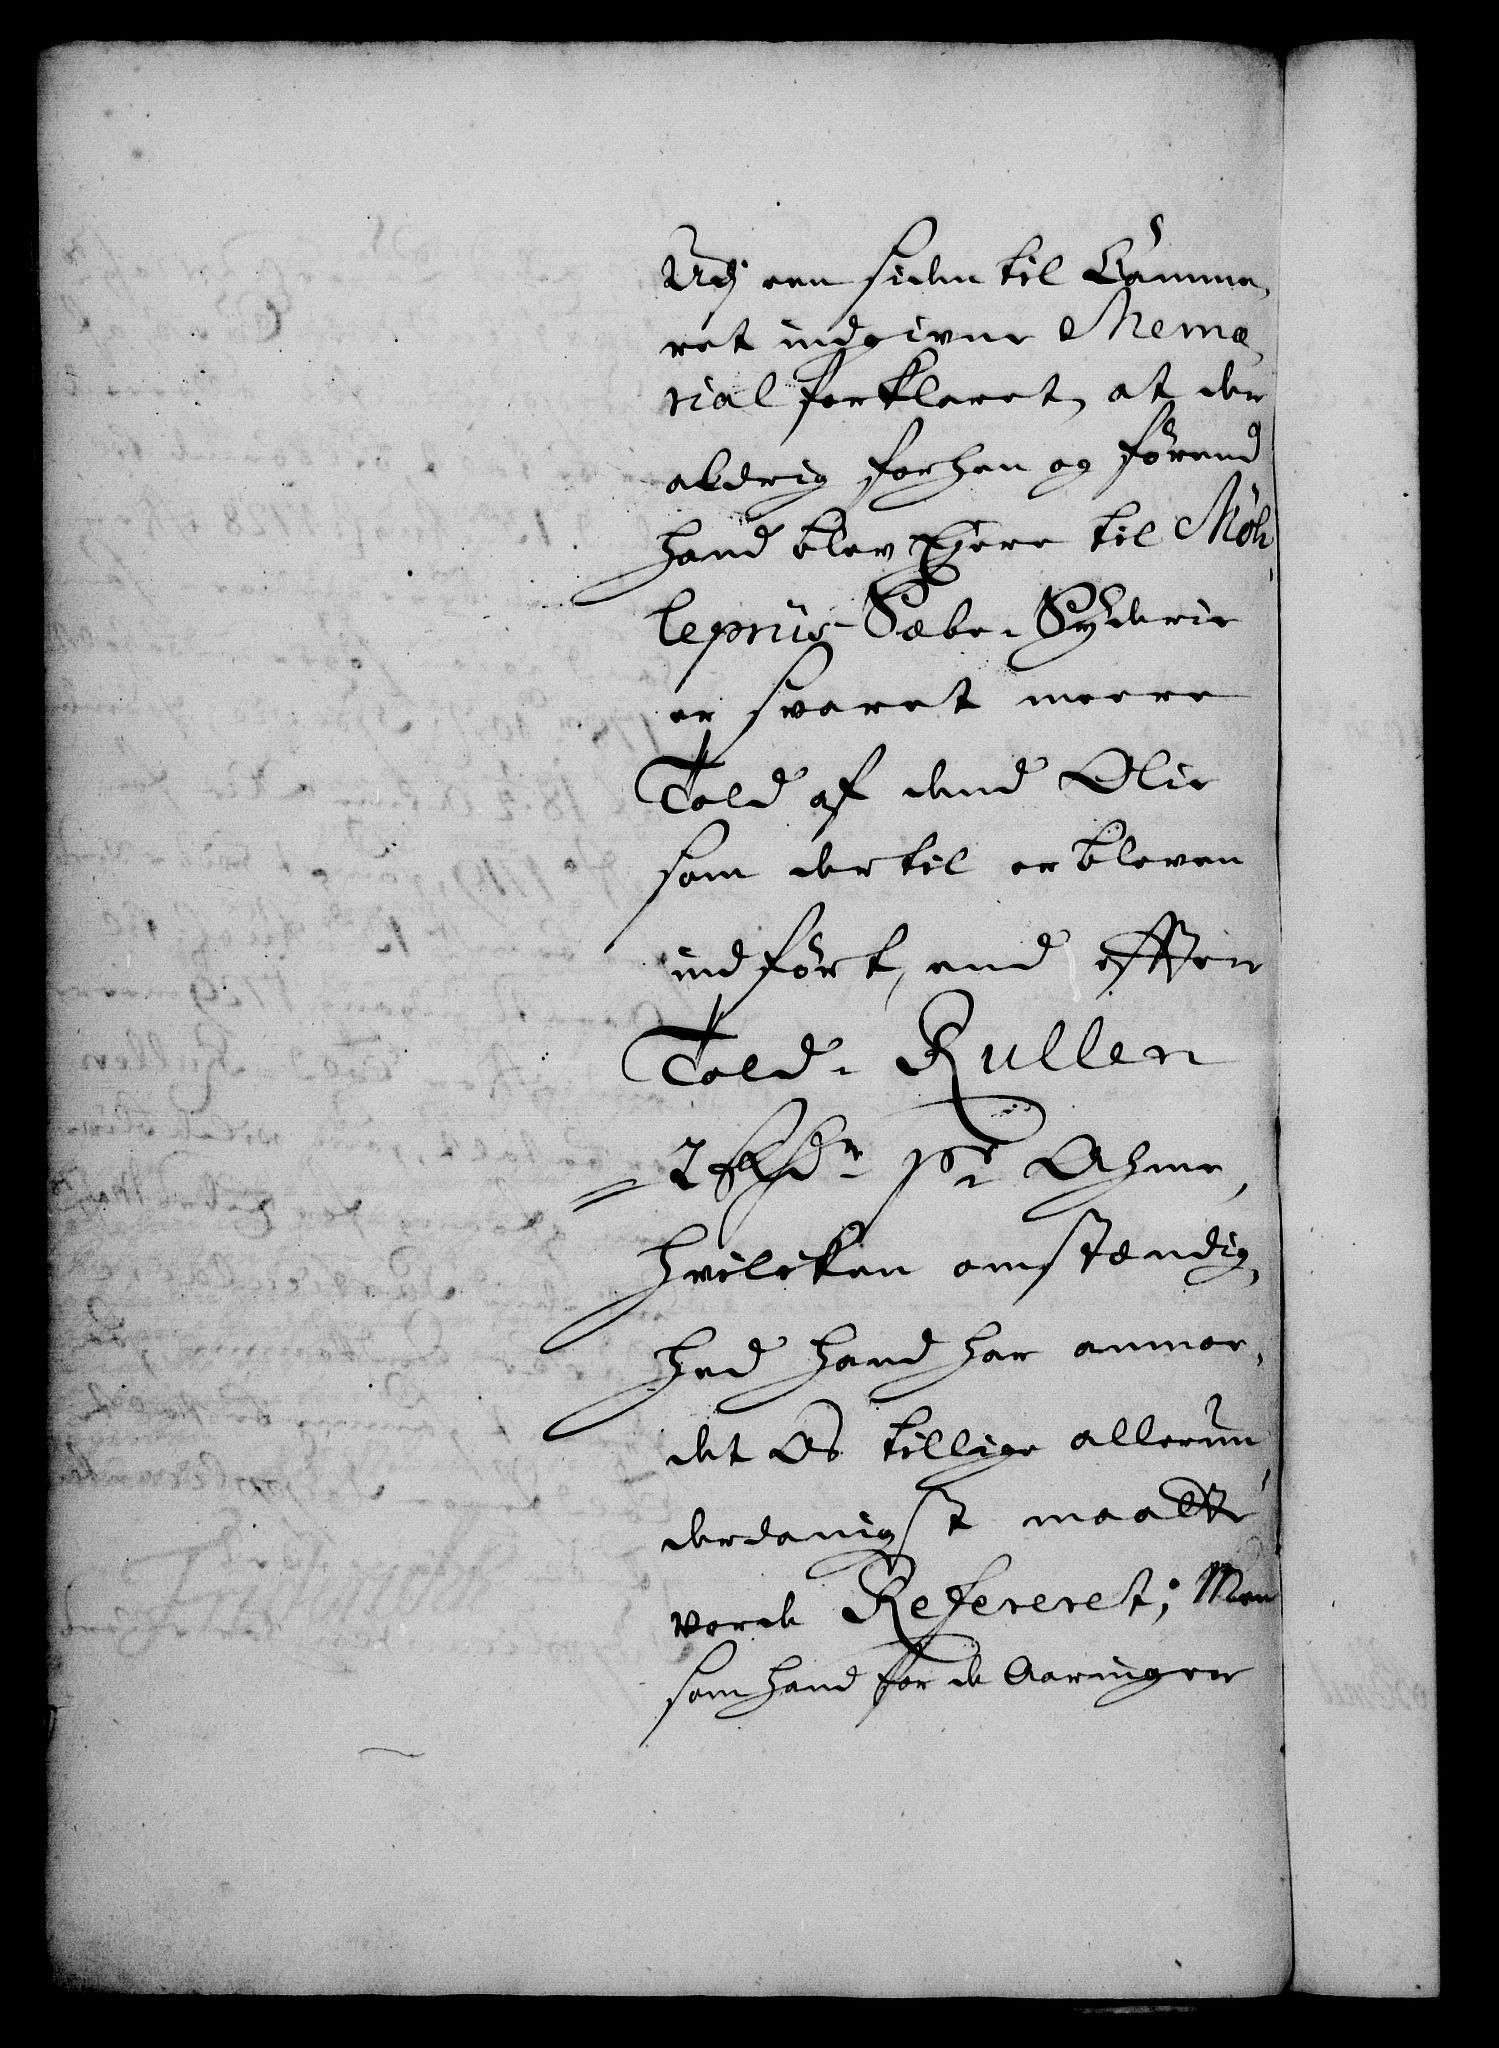 Udj een siden til Camme,
ret indgivne Memo,
rial forklaret, at der
aldrig forhen og förend
hand blev Ejere til Möh,
leprüs Sæbe-Syderie
er svaret meere
Told af dend Olie
som dertil er bleven
indført, end efter
Told-Rullen
2 Rdr pr Ahme,
hvilcken omstændig,
hed hand har anmo,
det Os tillige allerun,
derdanigst maatte
vorde Refereret; Men
som hand for de Aaringer